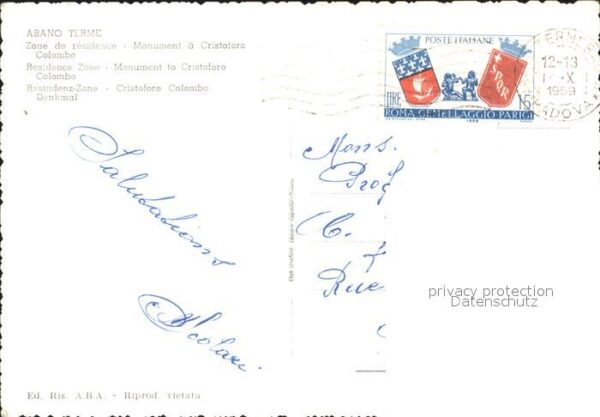 ABANO TERME
Zone de résidence - Monument à Cristoforo
Colombo
Residence Zone - Monument to Cristoforo
Colombo
Residenz-Zone - Cristoforo Colombo
Denkmal
POSTE ITALIANE
SPQR
LIRE 15
ROMA GEMELLAGGIO PARIGI
1958
12-13
X
1959
PADOVA
Salutations
Mons.
Prof
C.
Rue
privacy protection
Datenschutz
Ed. Ris. A.B.A. - Riprod. vietata